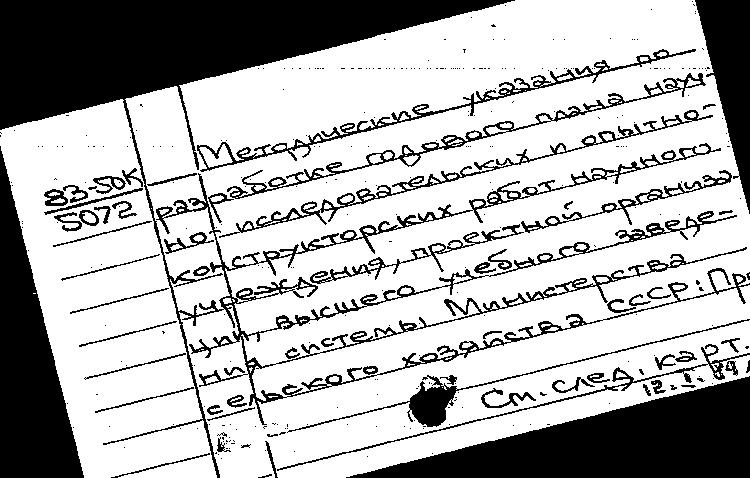 Методические указания по
83-50К
5072
разработке годового плана науч-
но-исследовательских и опытно-
конструкторских работ научного
учреждения, проектной организа-
ции, высшего учебного заведе-
ния системы Министерства
сельского хозяйства СССР: Пр
См. след. карт.